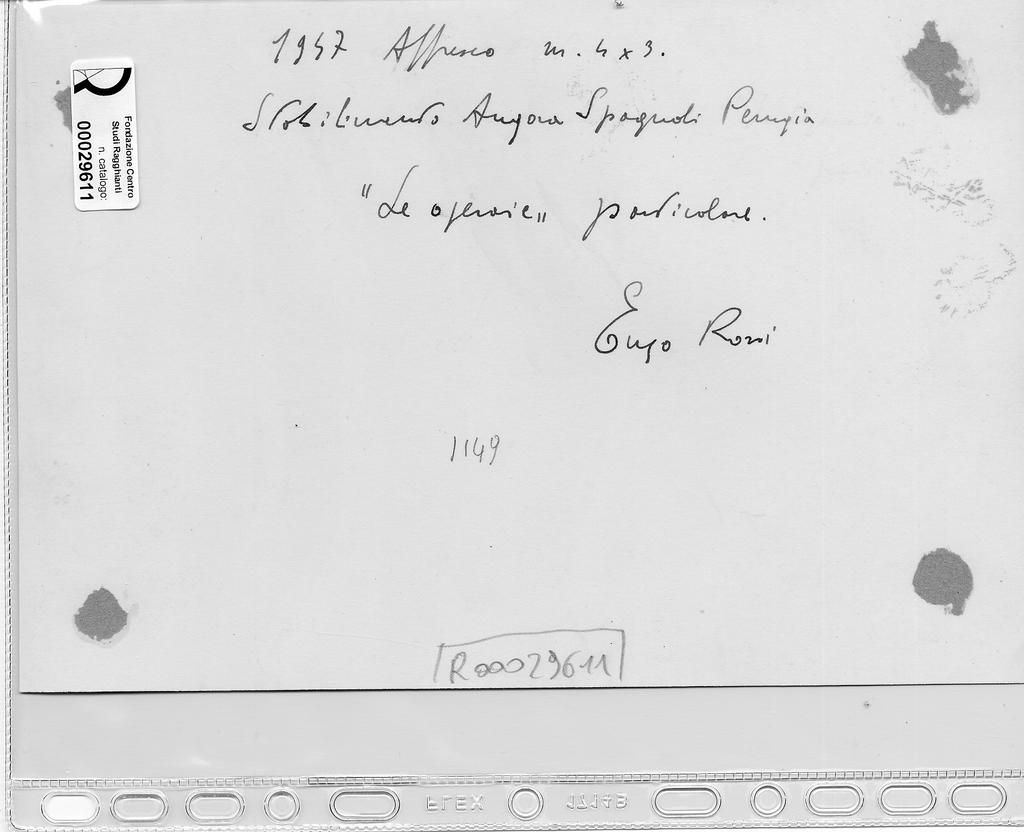 1947 Affresco m. 4 x 3.
Stabilimento Angora Spagnoli Perugia
"Le operaie" particolare.
Enzo Rossi
1149
R00029611
Fondazione Centro
Studi Ragghianti
n. catalogo:
00029611
FLEX 1714B